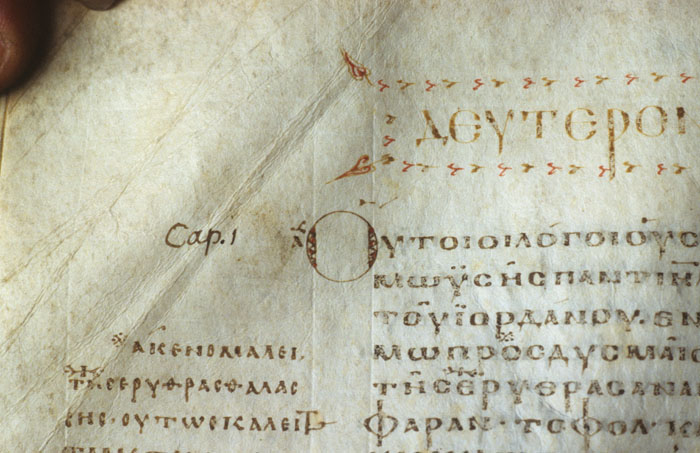 ΔΕΥΤΕΡΟ
Cap. 1
ΟΥΤΟΙΟΙΛΟΓΟΙΟΥϹ
ΜΩΫϹΗϹΠΑΝΤΙΗΛ
ΤΟΥΪΟΡΔΑΝΟΥ·ΕΝ
ΜΩΠΡΟϹΔΥϹΜΑΙϹ
ΤΗϹΕΡΥΘΡΑϹΑΝΑ
ΦΑΡΑΝ·ΤΟΦΟΛ·Κ
ΤΗϹΕΡΥΘΡΑϹΘΑΛΑϹ
ϹΗϹ·ΟΥΤΩϹΚΑΛΕΙΤ